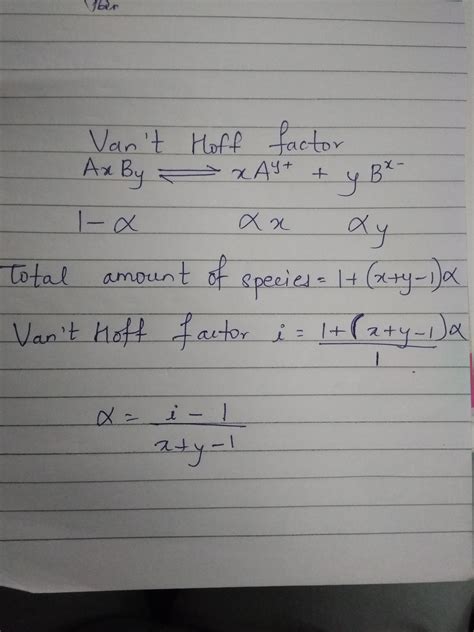 Van't Hoff factor
AxBy ⇌ xA^y+ + yB^x-
1-α αx αy
Total amount of species = 1+(x+y-1)α
Van't Hoff factor i = 1+(x+y-1)α / 1
α = i-1 / x+y-1